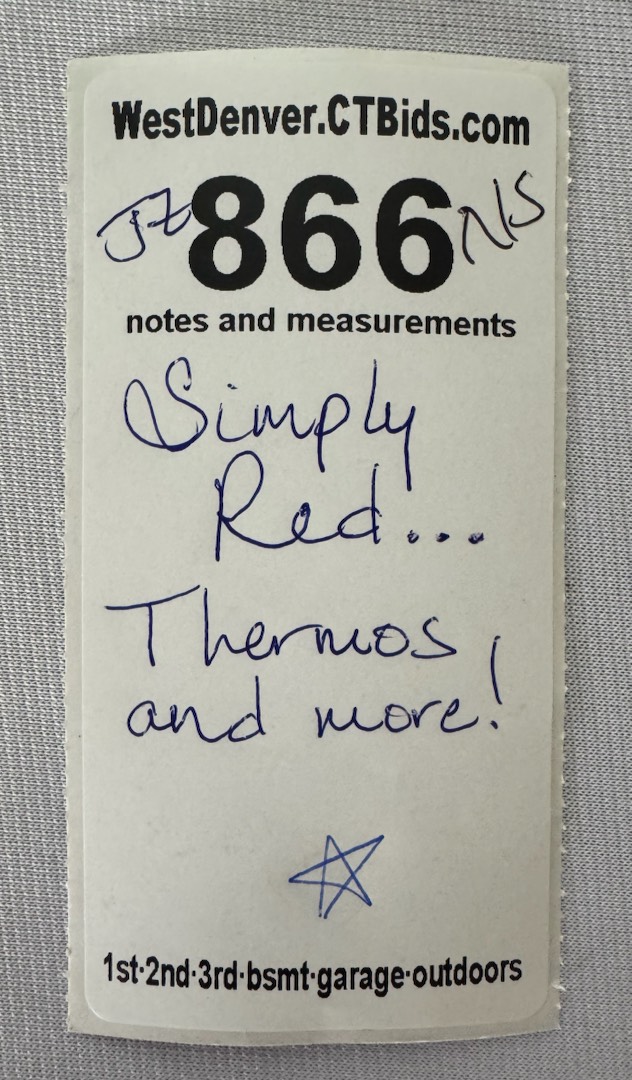 WestDenver.CTBids.com
JZ 866 NS
notes and measurements
Simply
Red...
Thermos
and more!
1st·2nd·3rd·bsmt·garage·outdoors